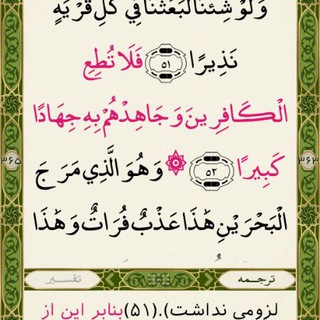 وَلَوْ شِئْنَا لَبَعَثْنَا فِي كُلِّ قَرْيَةٍ
نَذِيرًا ﴿٥١﴾ فَلَا تُطِعِ
الْكَافِرِينَ وَجَاهِدْهُمْ بِهِ جِهَادًا
كَبِيرًا ﴿٥٢﴾ ۞ وَهُوَ الَّذِي مَرَجَ
الْبَحْرَيْنِ هَٰذَا عَذْبٌ فُرَاتٌ وَهَٰذَا
۳۶۵
۳۶۳
ترجمه
تفسیر
لزومی نداشت).(۵۱)بنابر این از